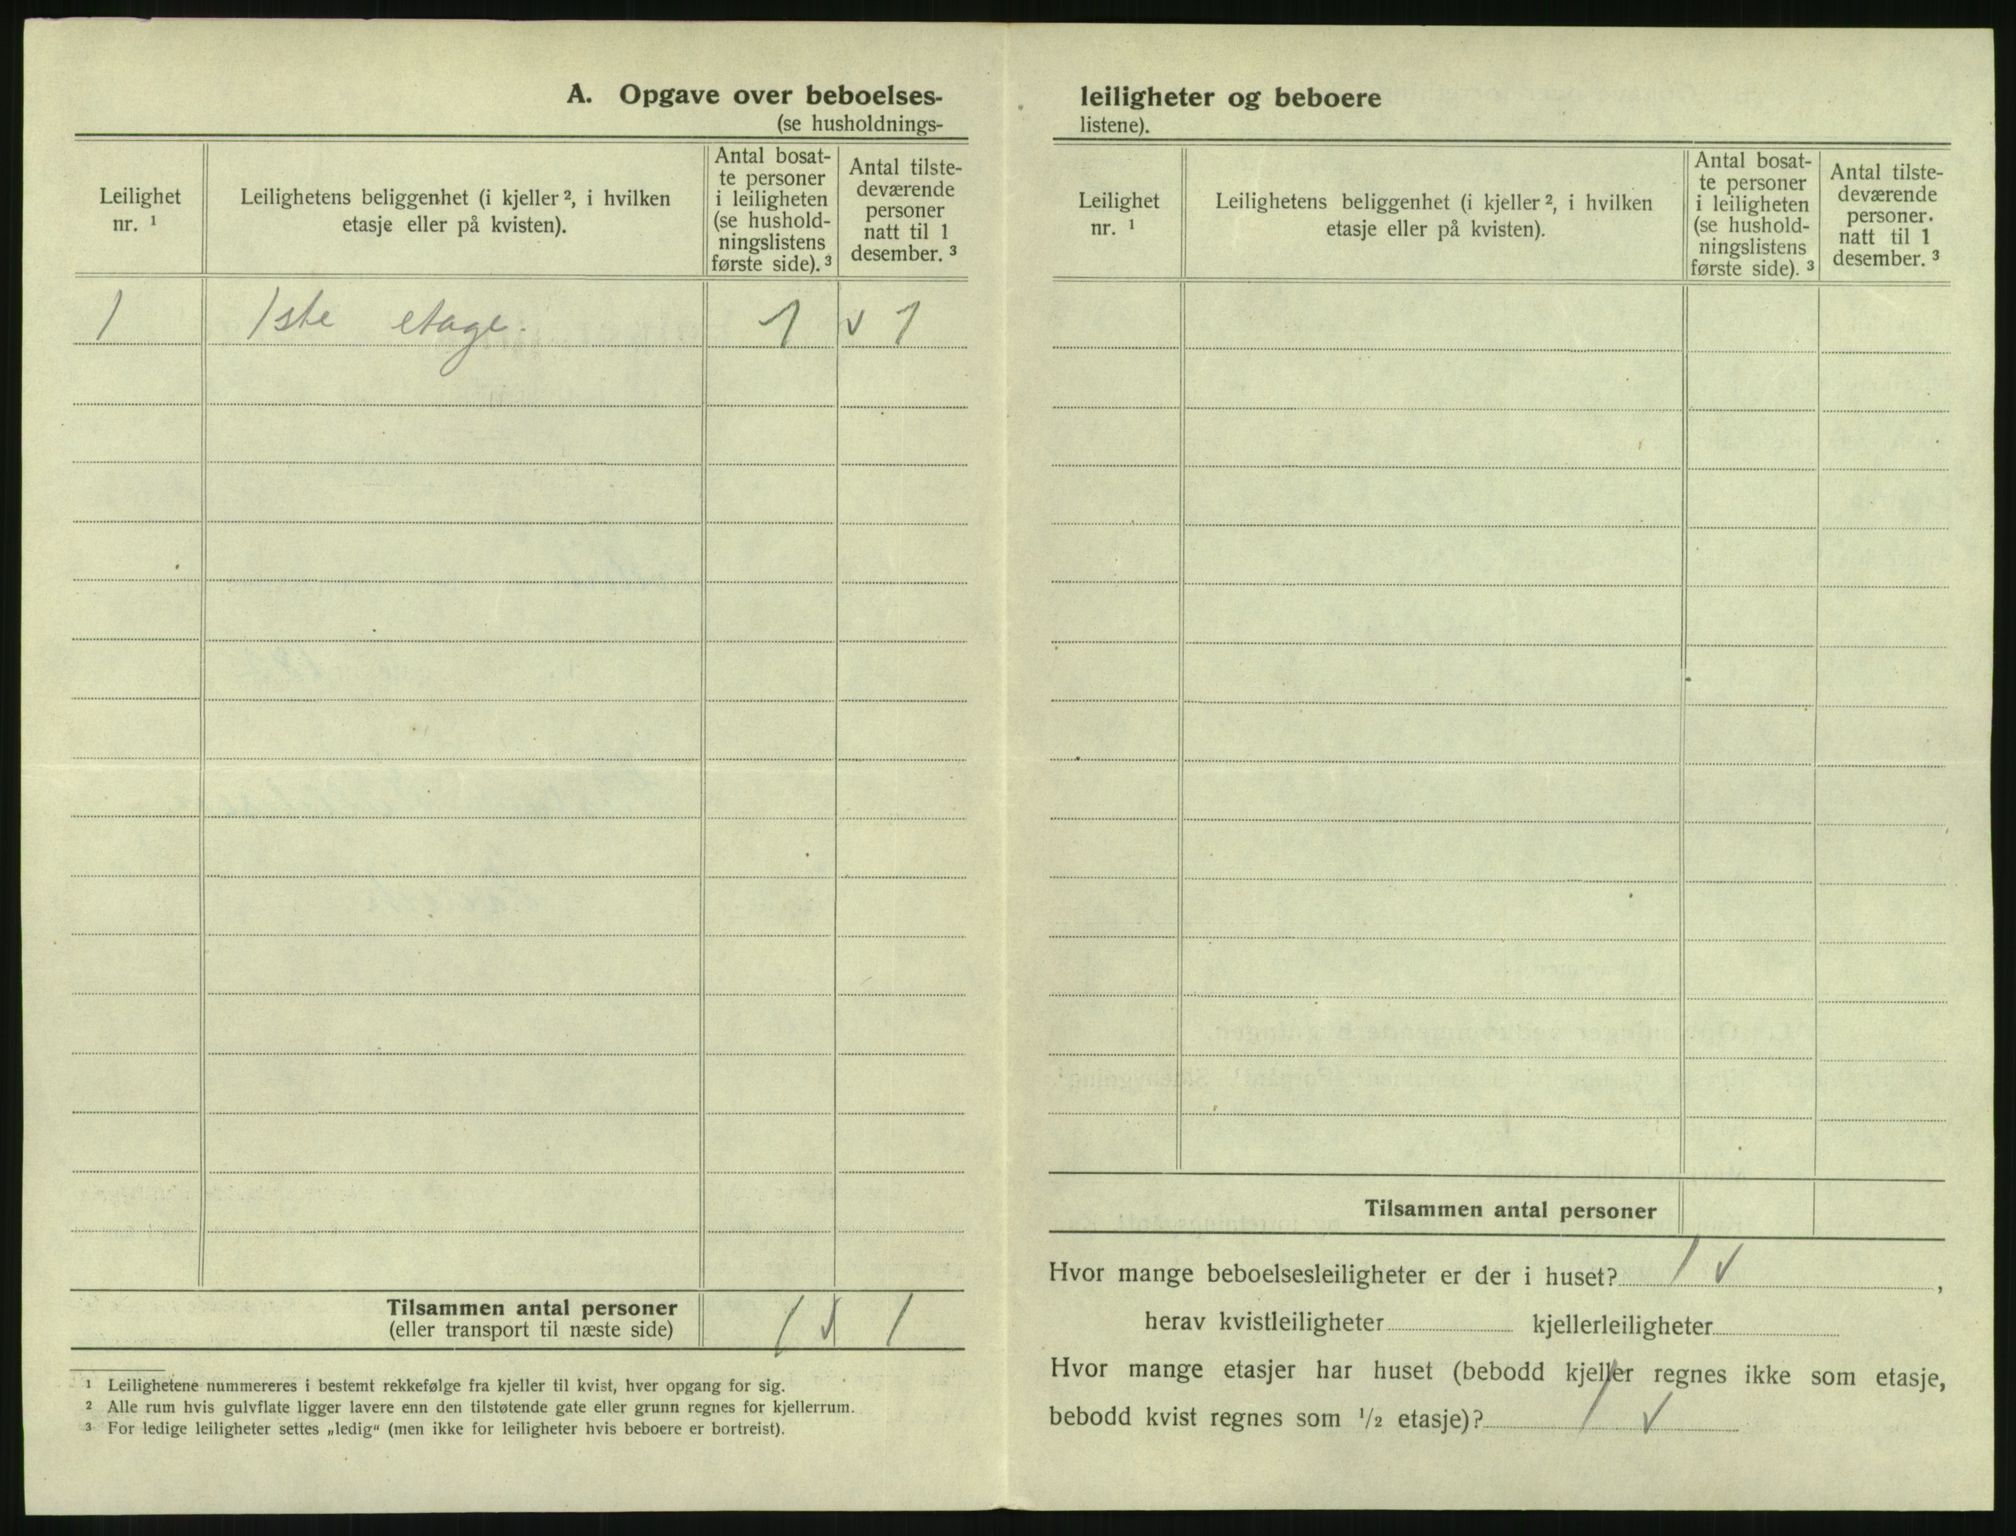 A. Opgave over beboelses-
(se husholdnings-
Leilighet
nr. ¹
Leilighetens beliggenhet (i kjeller ², i hvilken
etasje eller på kvisten).
Antal bosat-
te personer
i leiligheten
(se hushold-
ningslistens
første side). ³
Antal tilste-
deværende
personer
natt til 1
desember. ³
1 1ste etage. 1 v 1
Tilsammen antal personer
(eller transport til næste side)
1 √ 1
¹ Leilighetene nummereres i bestemt rekkefølge fra kjeller til kvist, hver opgang for sig.
² Alle rum hvis gulvflate ligger lavere enn den tilstøtende gate eller grunn regnes for kjellerrum.
³ For ledige leiligheter settes „ledig“ (men ikke for leiligheter hvis beboere er bortreist).
leiligheter og beboere
listene).
Leilighet
nr. ¹
Leilighetens beliggenhet (i kjeller ², i hvilken
etasje eller på kvisten).
Antal bosat-
te personer
i leiligheten
(se hushold-
ningslistens
første side). ³
Antal tilste-
deværende
personer.
natt til 1
desember. ³
Tilsammen antal personer
Hvor mange beboelsesleiligheter er der i huset? 1 √ ,
herav kvistleiligheter kjellerleiligheter
Hvor mange etasjer har huset (bebodd kjeller regnes ikke som etasje,
bebodd kvist regnes som ¹/₂ etasje)? 1 √